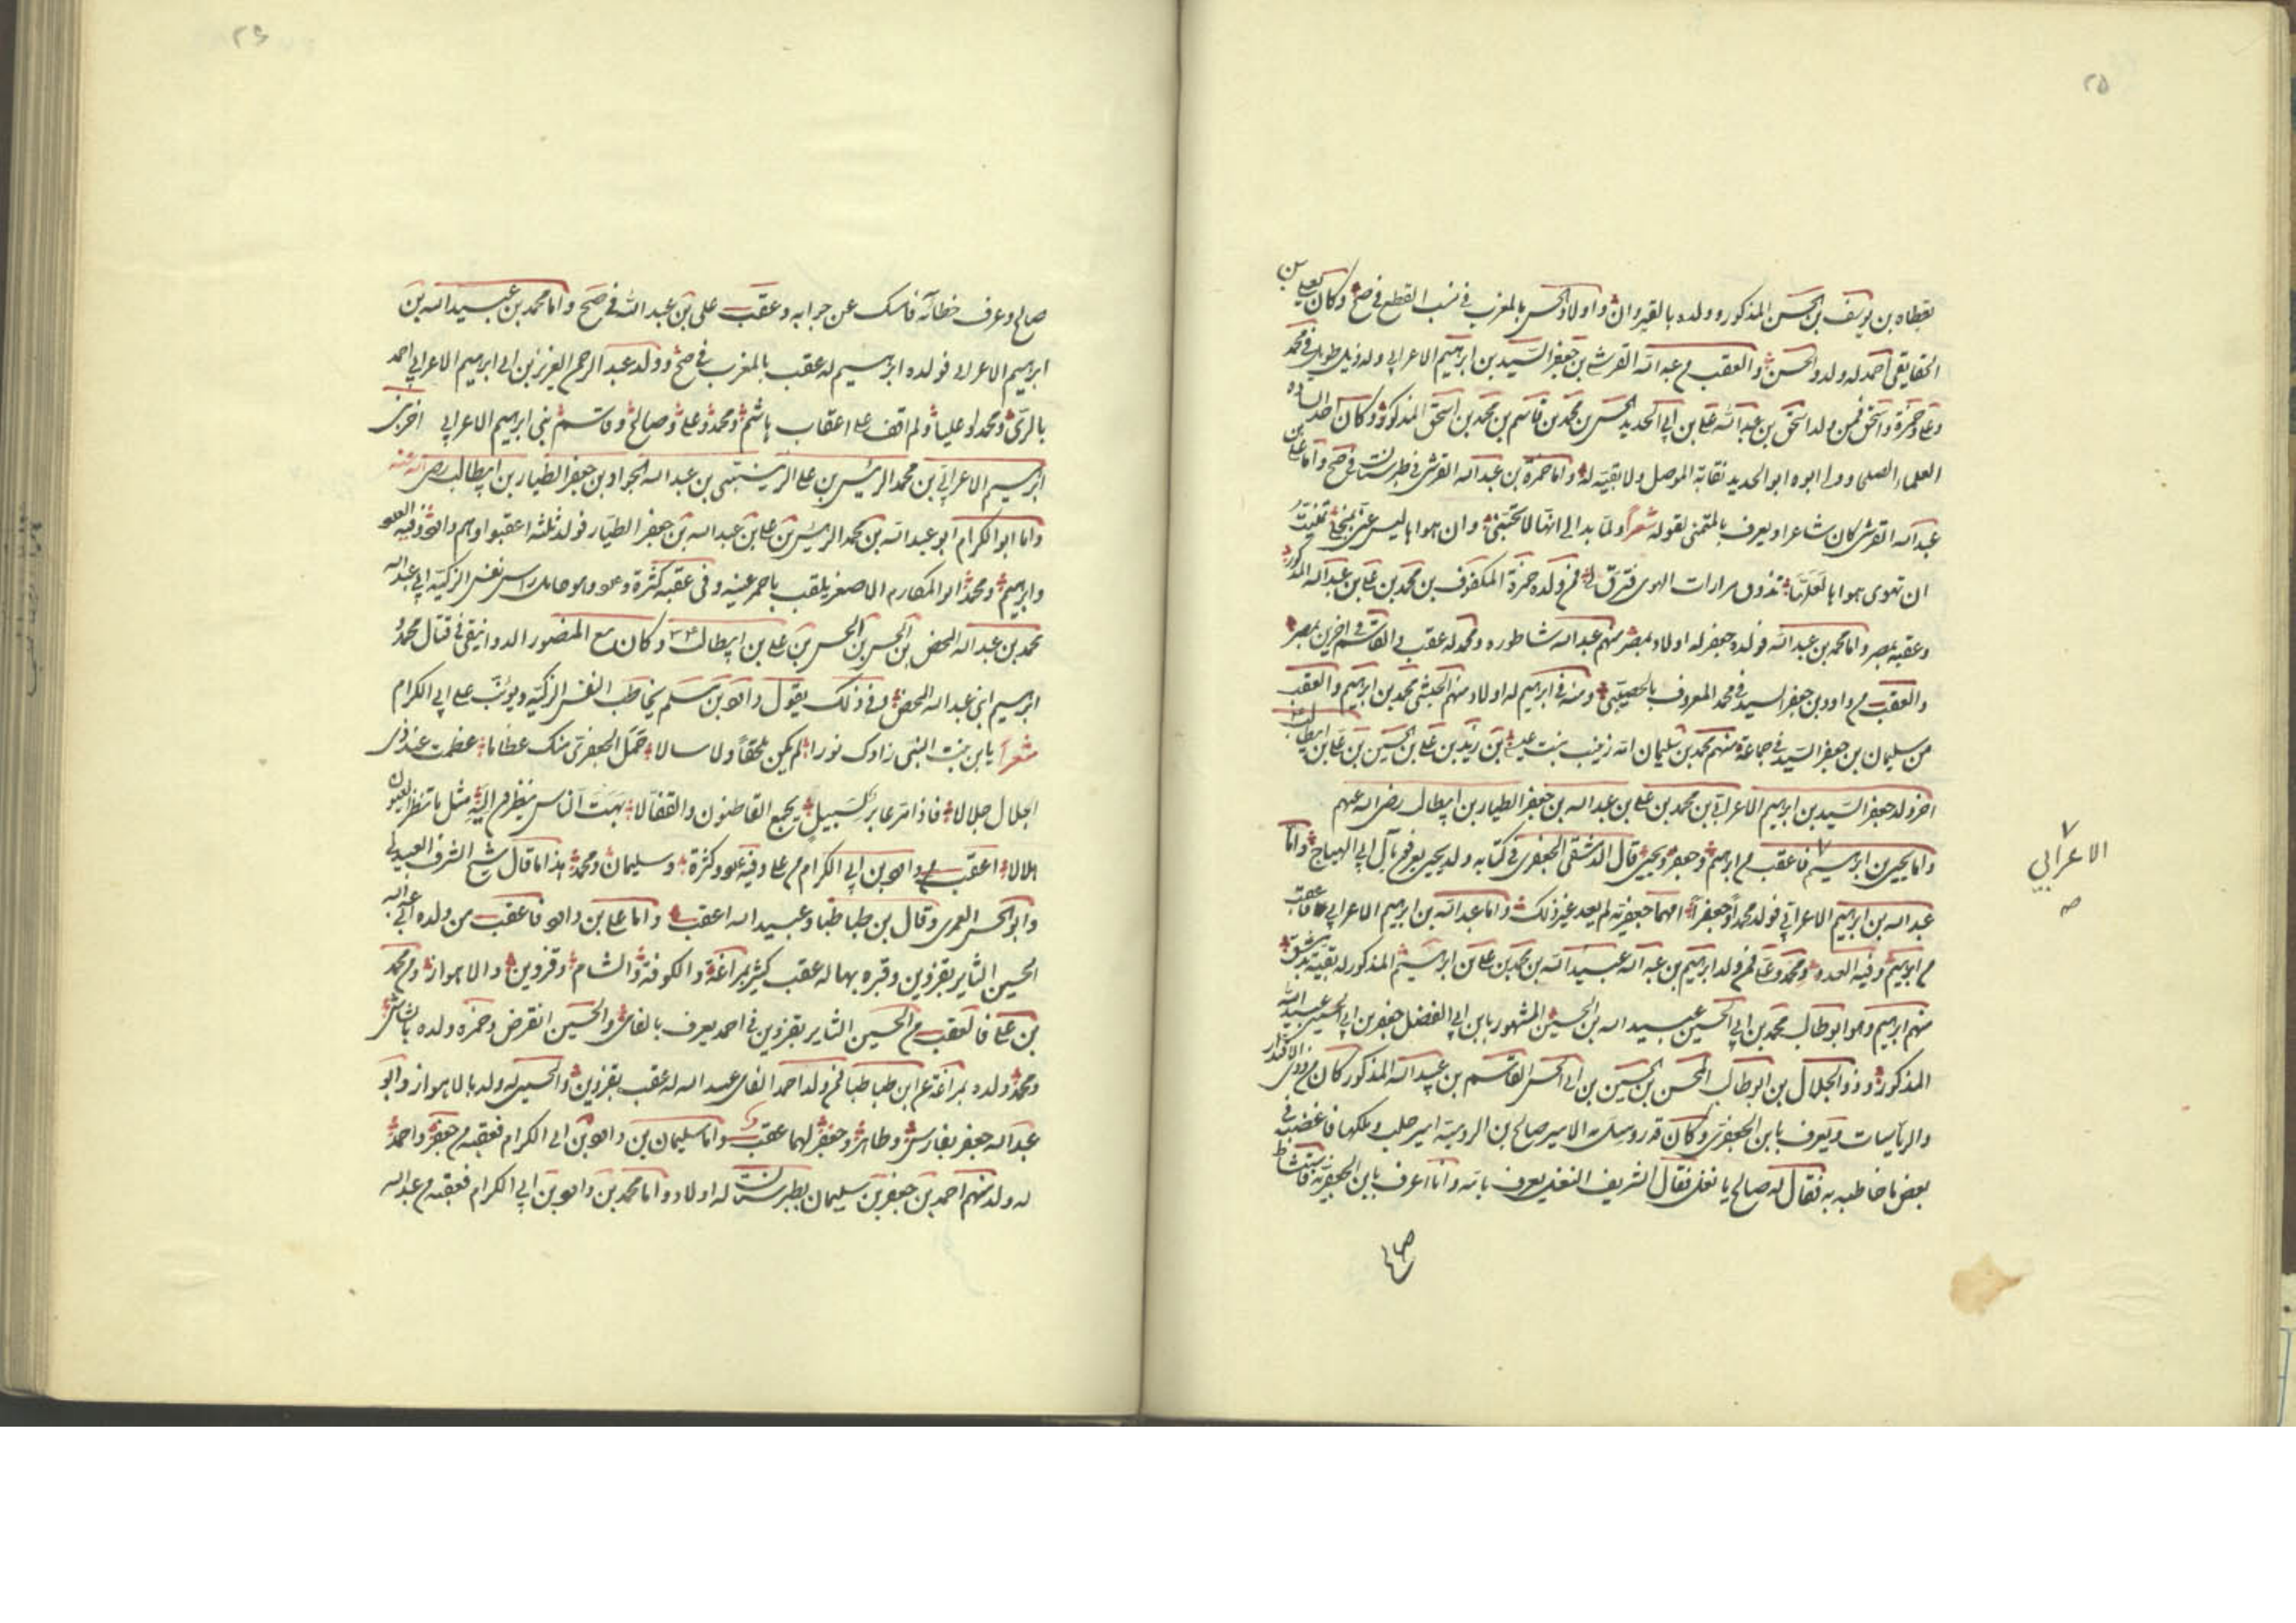 ٢٥
يقظاه بن يوسف بن الحسن المذكور وولده بالقيروان واولاد الحسن بالمغرب في نسب القطع في صح وكان لعلي بن
احمد له ولد والحسن والعقب من عبد الله القرشي بن جعفر السيد بن ابرهيم الاعرابي وله ذيل طويل في محمد
وعلي وحمزة واسحق فمن ولد اسحق بن عبد الله علي بن ابي الحديد الحسن بن محمد بن قاسم بن محمد بن اسحق المذكور وكان احد السادة
العلماء ابوه ابو الحديد نقابة الموصل ولا بقية له واما حمزة بن عبد الله القرشي في طبرستان في صح واما علي بن
عبد الله القرشي كان شاعرا ويعرف بالمتمنى لقوله شعرا ولما بدا لي انها لا تحبني وان هواها ليس عني بمنجلي تمنيت
ان تهوى هوايا لعلها تذوق مرارات الهوى فترق لي فمن ولده حمزة المكفوف بن محمد بن علي بن عبد الله المذكور
وعقبه بمصر واما محمد بن عبد الله فولده جعفر له اولاد بمصر منهم عبد الله شاطوره ومحمد له عقب والقاسم في اخرين بمصر
والعقب من داود بن جعفر السيد في محمد المعروف ومنه في ابرهيم له اولاد منهم محمد بن ابرهيم والعقب
من سليمان بن جعفر السيد في جماعة منهم محمد بن سليمان امه زينب بنت بن زيد بن علي بن الحسين بن علي بن ابيطالب
اخر ولد جعفر السيد بن ابرهيم الاعرابي بن محمد بن علي بن عبد الله بن جعفر الطيار بن ابيطالب رضي الله عنهم
واما يحيى بن ابرهيم فاعقب من ابرهيم وجعفر ويحيى قال الدمشقي الجعفري في كتابه ولد يحيى يعرفون بآل ابي الهياج واما
عبد الله بن ابرهيم الاعرابي فولد محمدا وجعفرا امهما جعفرية لم يعد غير ذلك واما عبد الله بن ابرهيم الاعرابي فاعقب
من ابرهيم وفيه العدد ومحمد وعلي فمن ولد ابرهيم بن عبد الله عبيد الله بن محمد بن علي بن ابرهيم المذكور له بقية بدمشق
منهم ابرهيم وهو ابو طالب محمد بن ابي الحسين عبيد الله بن الحسين المشهور بابن ابي الفضل جعفر بن ابي الحسين عبيد الله
المذكور وذو الجلال بن ابو طالب المحسن بن الحسين بن ابي الحسن القاسم بن عبيد الله المذكور كان من ذوي الاقدار
والرياسات ويعرف بابن الجعفري وكان قد الامير صالح بن الرومية امير حلب وملكها فاغضبه في
بعض ما خاطبه به فقال له صالح يا نغل فقال الشريف النغل يعرف بامه وانا اعرف بابن الجعفرية فاستشاط
الاعرابي
صح
صالح

٢٦
صالح وعرف خطائه فامسك عن جوابه وعقب علي بن عبد الله في صح واما محمد بن عبيد الله بن
ابرهيم الاعرابي فولده ابرهيم له عقب بالمغرب في صح وولد عبد الرحمن العزيز بن ابي ابرهيم الاعرابي احمد
بالري ومحمدا وعليا ولم اقف على اعقاب هاشم ومحمد وعلي وصالح وقاسم بني ابرهيم الاعرابي اخر بني
ابرهيم الاعرابي بن محمد الرئيس بن علي الزينبي بن عبد الله الجواد بن جعفر الطيار بن ابيطالب رضي الله عنه
واما ابو الكرام ابو عبد الله بن محمد الرئيس بن علي بن عبد الله بن جعفر الطيار فولد ثلثه اعقبوا وهم داود وفيه العدد
وابرهيم ومحمد ابو المكارم الاصغر يلقب باحمر عينه وفي عقبه كثرة وهو حامل راس نفس الزكية ابي عبد الله
محمد بن عبد الله المحض بن الحسن بن الحسن بن علي بن ابيطالب وكان مع المنصور الدوانيقي في قتال محمد و
ابرهيم ابني عبد الله المحض وفي ذلك يقول داود بن سلم يخاطب النفس الزكية ويؤنب على ابي الكرام
شعرا يا بن بنت النبي زادك نورا لم يكن ملحقا ولا سالا حمل الجعفري منك عظاما عظمت عند ذي
الجلال جلالا فاذا مر عابر لسبيل يجمع القاطنون والقفالا بهت الناس ينظرون اليه مثل ما تنظر العيون
الهلالا اعقب داود بن ابي الكرام من علي وفيه عدد وكثرة وسليمان ومحمد هذا ما قال شيخ الشرف العبيدلي
وابو الحسن العمري وقال بن طباطبا وعبيد الله اعقب واما علي بن داود فاعقب من ولده ابي عبد الله
الحسين الثاير بقزوين وقبره بها له عقب كثير بمراغة والكوفة والشام وقزوين والاهواز ومن محمد
بن علي فالعقب من الحسين الثاير بقزوين في احمد يعرف والحسين انقرض وحمزه ولده بالشاش
ومحمد ولده بمراغة عم ابن طباطبا فمن ولد احمد عبيد الله له عقب بقزوين والحسين له ولد بالاهواز وابو
عبد الله جعفر بفارس وطاهر وجعفر لهما عقب واما سليمان بن داود بن ابي الكرام فعقبه من جعفر واحمد
له ولد منهم احمد بن جعفر بن سليمان بطبرستان له اولاد واما محمد بن داود بن ابي الكرام فعقبه من عبد الله